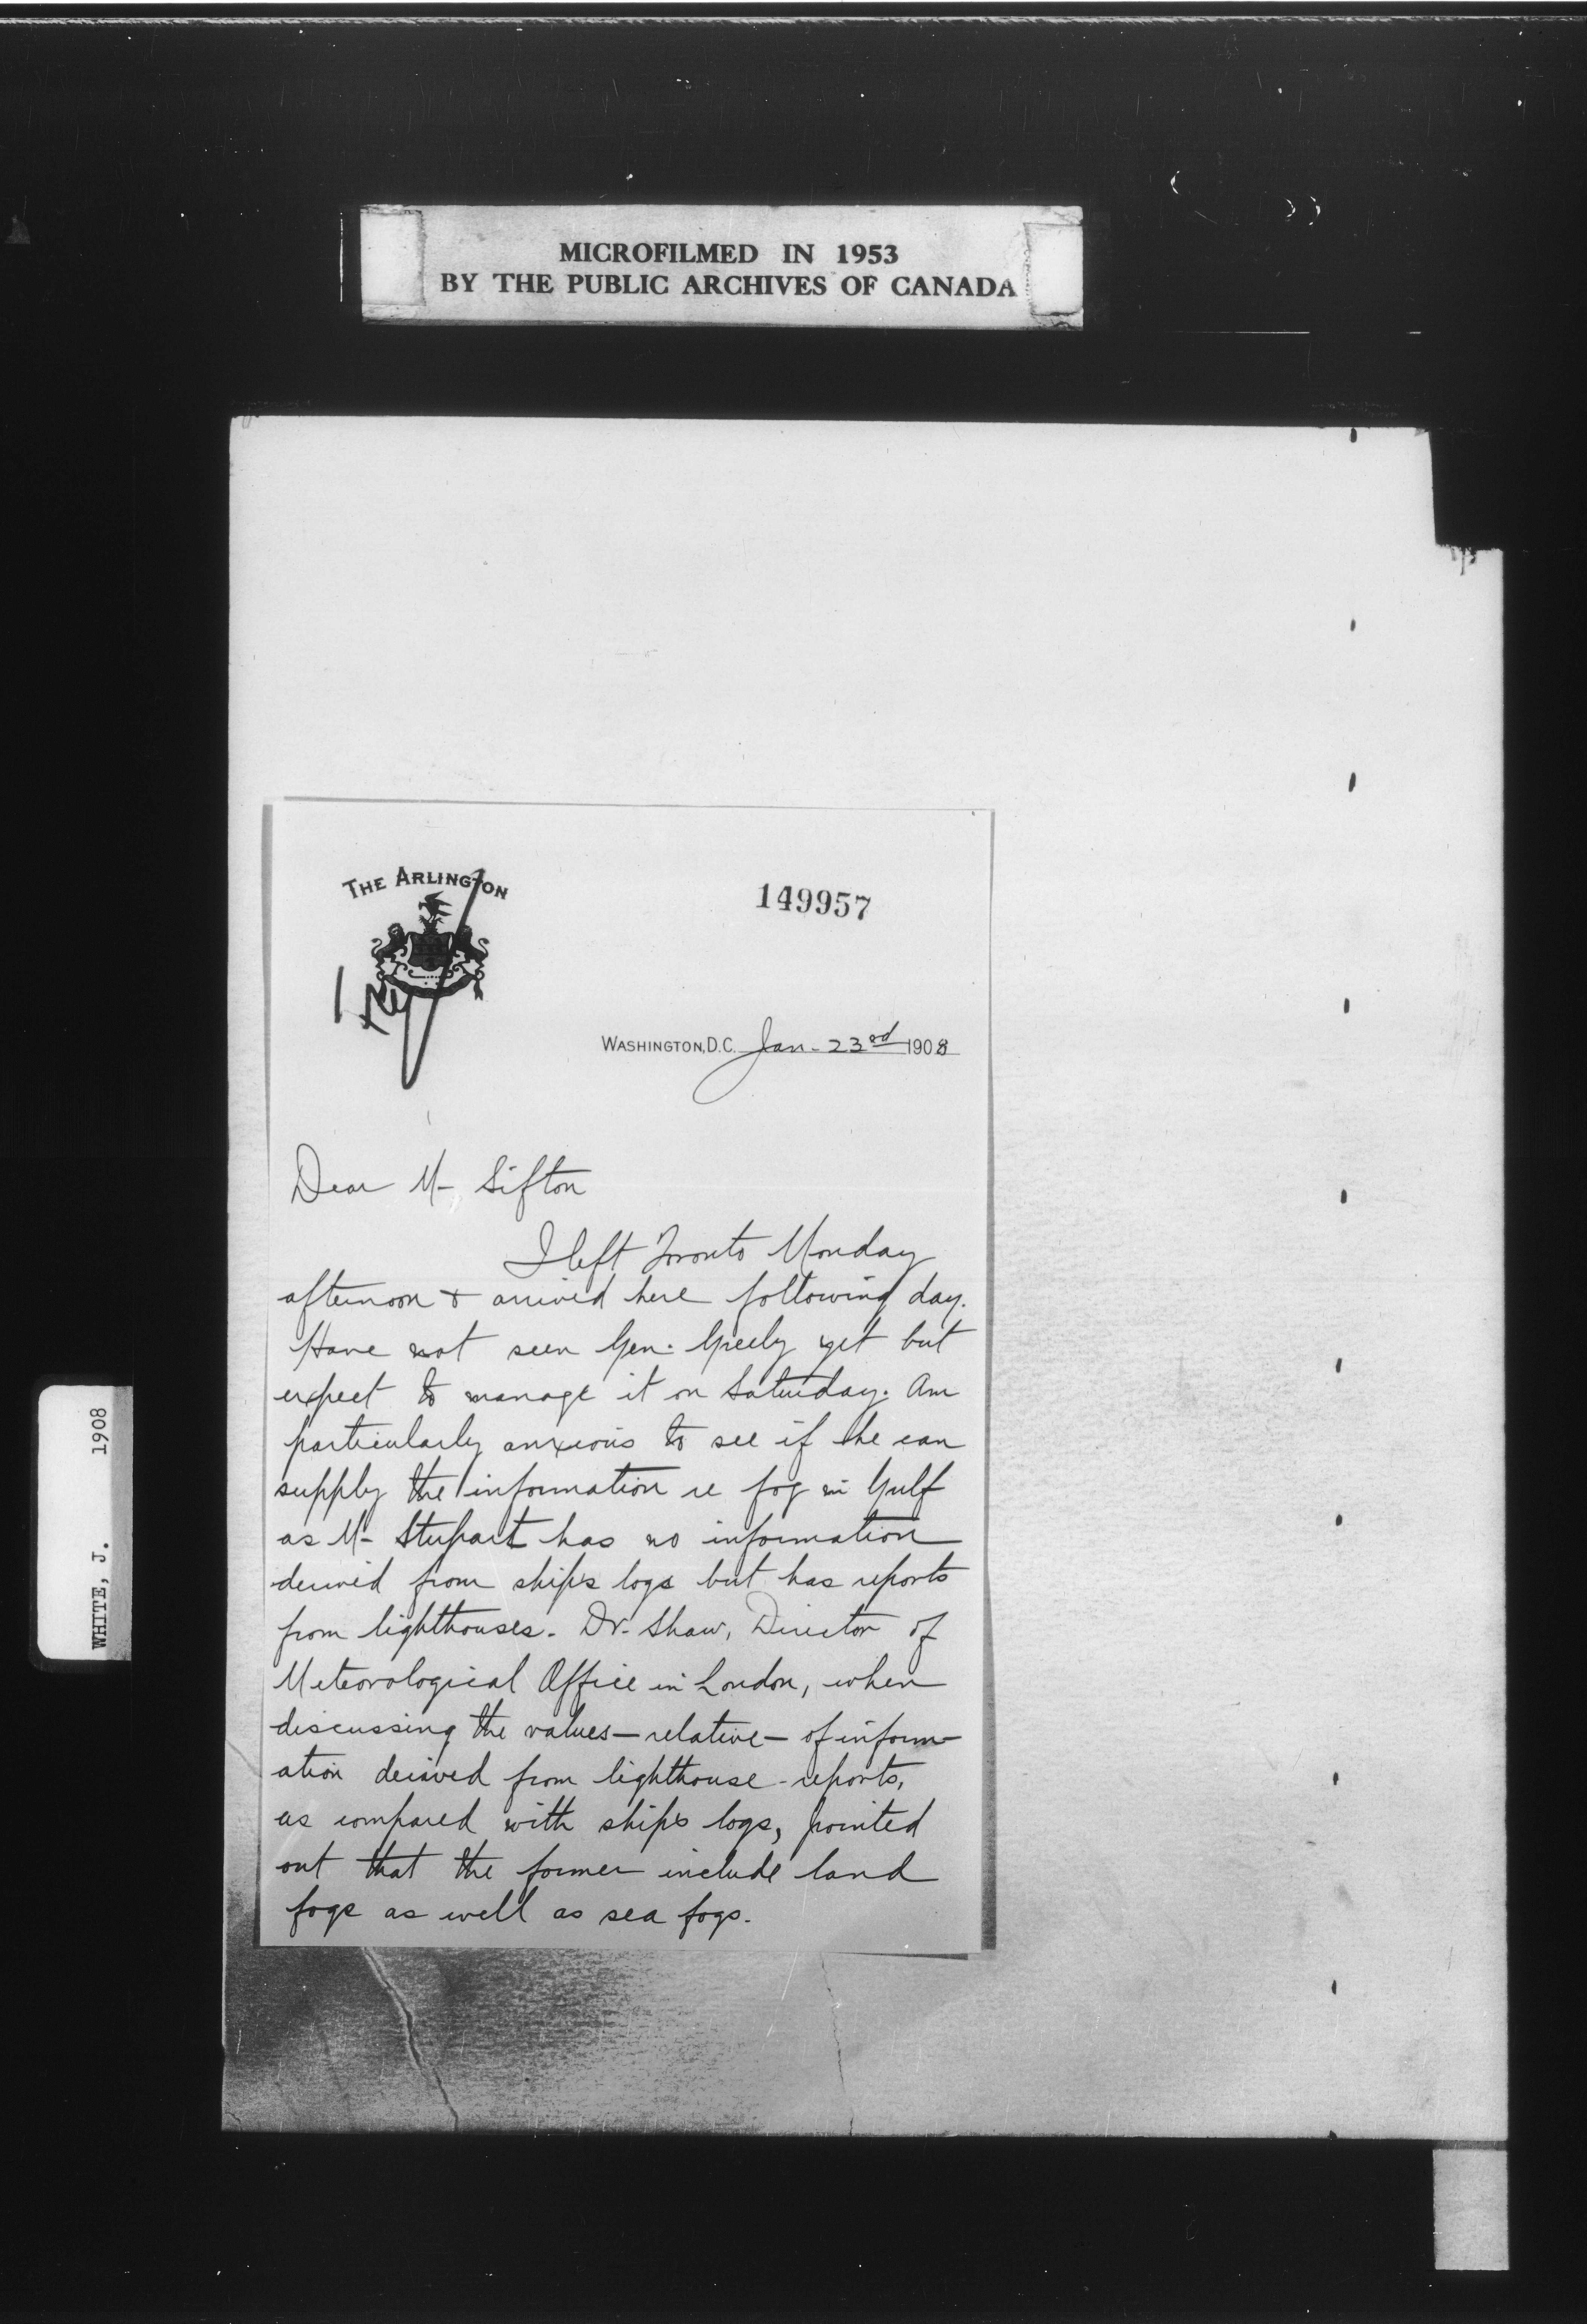 MICROFILMED IN 1953
BY THE PUBLIC ARCHIVES OF CANADA
WHITE, J. 1908
THE ARLINGTON
149957
WASHINGTON, D.C. Jan- 23rd 1908
Dear Mr Sifton
I left Toronto Monday
afternoon & arrived here following day.
Have not seen Gen. Greely yet but
expect to manage it on Saturday. Am
particularly anxious to see if he can
supply the information re fog in Gulf
as Mr Stupart has no information
derived from ship's logs but has reports
from lighthouses. Dr. Shaw, Director of
Meteorological Office in London, when
discussing the values—relative—of inform-
ation derived from lighthouse-reports,
as compared with ship's logs, pointed
out that the former include land
fogs as well as sea fogs.